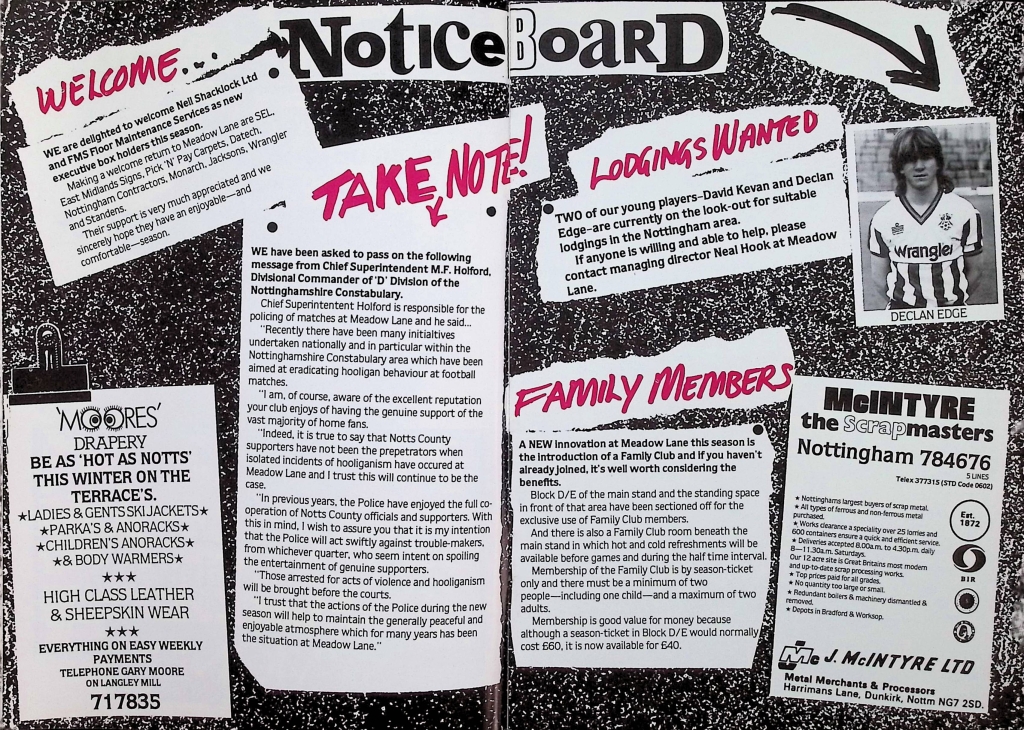 NoticeBoard
WELCOME...
WE are delighted to welcome Nell Shacklock Ltd
and FMS Floor Maintenance Services as new
executive box holders this season.
Making a welcome return to Meadow Lane are SEL,
East Midlands Signs, Pick 'N' Pay Carpets, Datech,
Nottingham Contractors, Monarch, Jacksons, Wrangler
and Standens.
Their support is very much appreciated and we
sincerely hope they have an enjoyable—and
comfortable—season.
'MOORES'
DRAPERY
BE AS 'HOT AS NOTTS'
THIS WINTER ON THE
TERRACE'S.
★LADIES & GENTS SKI JACKETS★
★PARKA'S & ANORACKS★
★CHILDREN'S ANORACKS★
★& BODY WARMERS★
★★★
HIGH CLASS LEATHER
& SHEEPSKIN WEAR
★★★
EVERYTHING ON EASY WEEKLY
PAYMENTS
TELEPHONE GARY MOORE
ON LANGLEY MILL
717835
TAKE NOTE!
WE have been asked to pass on the following
message from Chief Superintendent M.F. Holford,
Divisional Commander of 'D' Division of the
Nottinghamshire Constabulary.
Chief Superintentent Holford is responsible for the
policing of matches at Meadow Lane and he said...
"Recently there have been many initialtives
undertaken nationally and in particular within the
Nottinghamshire Constabulary area which have been
aimed at eradicating hooligan behaviour at football
matches.
"I am, of course, aware of the excellent reputation
your club enjoys of having the genuine support of the
vast majority of home fans.
"Indeed, it is true to say that Notts County
supporters have not been the prepetrators when
isolated incidents of hooliganism have occured at
Meadow Lane and I trust this will continue to be the
case.
"In previous years, the Police have enjoyed the full co-
operation of Notts County officials and supporters. With
this in mind, I wish to assure you that it is my intention
that the Police will act swiftly against trouble-makers,
from whichever quarter, who seem intent on spoiling
the entertainment of genuine supporters.
"Those arrested for acts of violence and hooliganism
will be brought before the courts.
"I trust that the actions of the Police during the new
season will help to maintain the generally peaceful and
enjoyable atmosphere which for many years has been
the situation at Meadow Lane."
LODGINGS WANTED
TWO of our young players–David Kevan and Declan
Edge–are currently on the look-out for suitable
lodgings in the Nottingham area.
If anyone is willing and able to help, please
contact managing director Neal Hook at Meadow
Lane.
Wrangler
DECLAN EDGE
FAMILY MEMBERS
A NEW innovation at Meadow Lane this season is
the introduction of a Family Club and if you haven't
already joined, it's well worth considering the
benefits.
Block D/E of the main stand and the standing space
in front of that area have been sectioned off for the
exclusive use of Family Club members.
And there is also a Family Club room beneath the
main stand in which hot and cold refreshments will be
available before games and during the half time interval.
Membership of the Family Club is by season-ticket
only and there must be a minimum of two
people—including one child—and a maximum of two
adults.
Membership is good value for money because
although a season-ticket in Block D/E would normally
cost £60, it is now available for £40.
McINTYRE
the Scrapmasters
Nottingham 784676
5 LINES
Telex 377315 (STD Code 0602)
★ Nottinghams largest buyers of scrap metal.
★ All types of ferrous and non-ferrous metal
purchased.
★ Works clearance a speciality over 25 lorries and
600 containers ensure a quick and efficient service.
★ Deliveries accepted 8.00a.m. to 4.30p.m. daily
8—11.30a.m. Saturdays.
Our 12 acre site is Great Britains most modern
and up-to-date scrap processing works.
★ Top prices paid for all grades.
★ No quantity too large or small.
★ Redundant boilers & machinery dismantled &
removed.
★ Depots in Bradford & Worksop.
Est.
1872
BIR
Mc J. McINTYRE LTD
Metal Merchants & Processors
Harrimans Lane, Dunkirk, Nottm NG7 2SD.